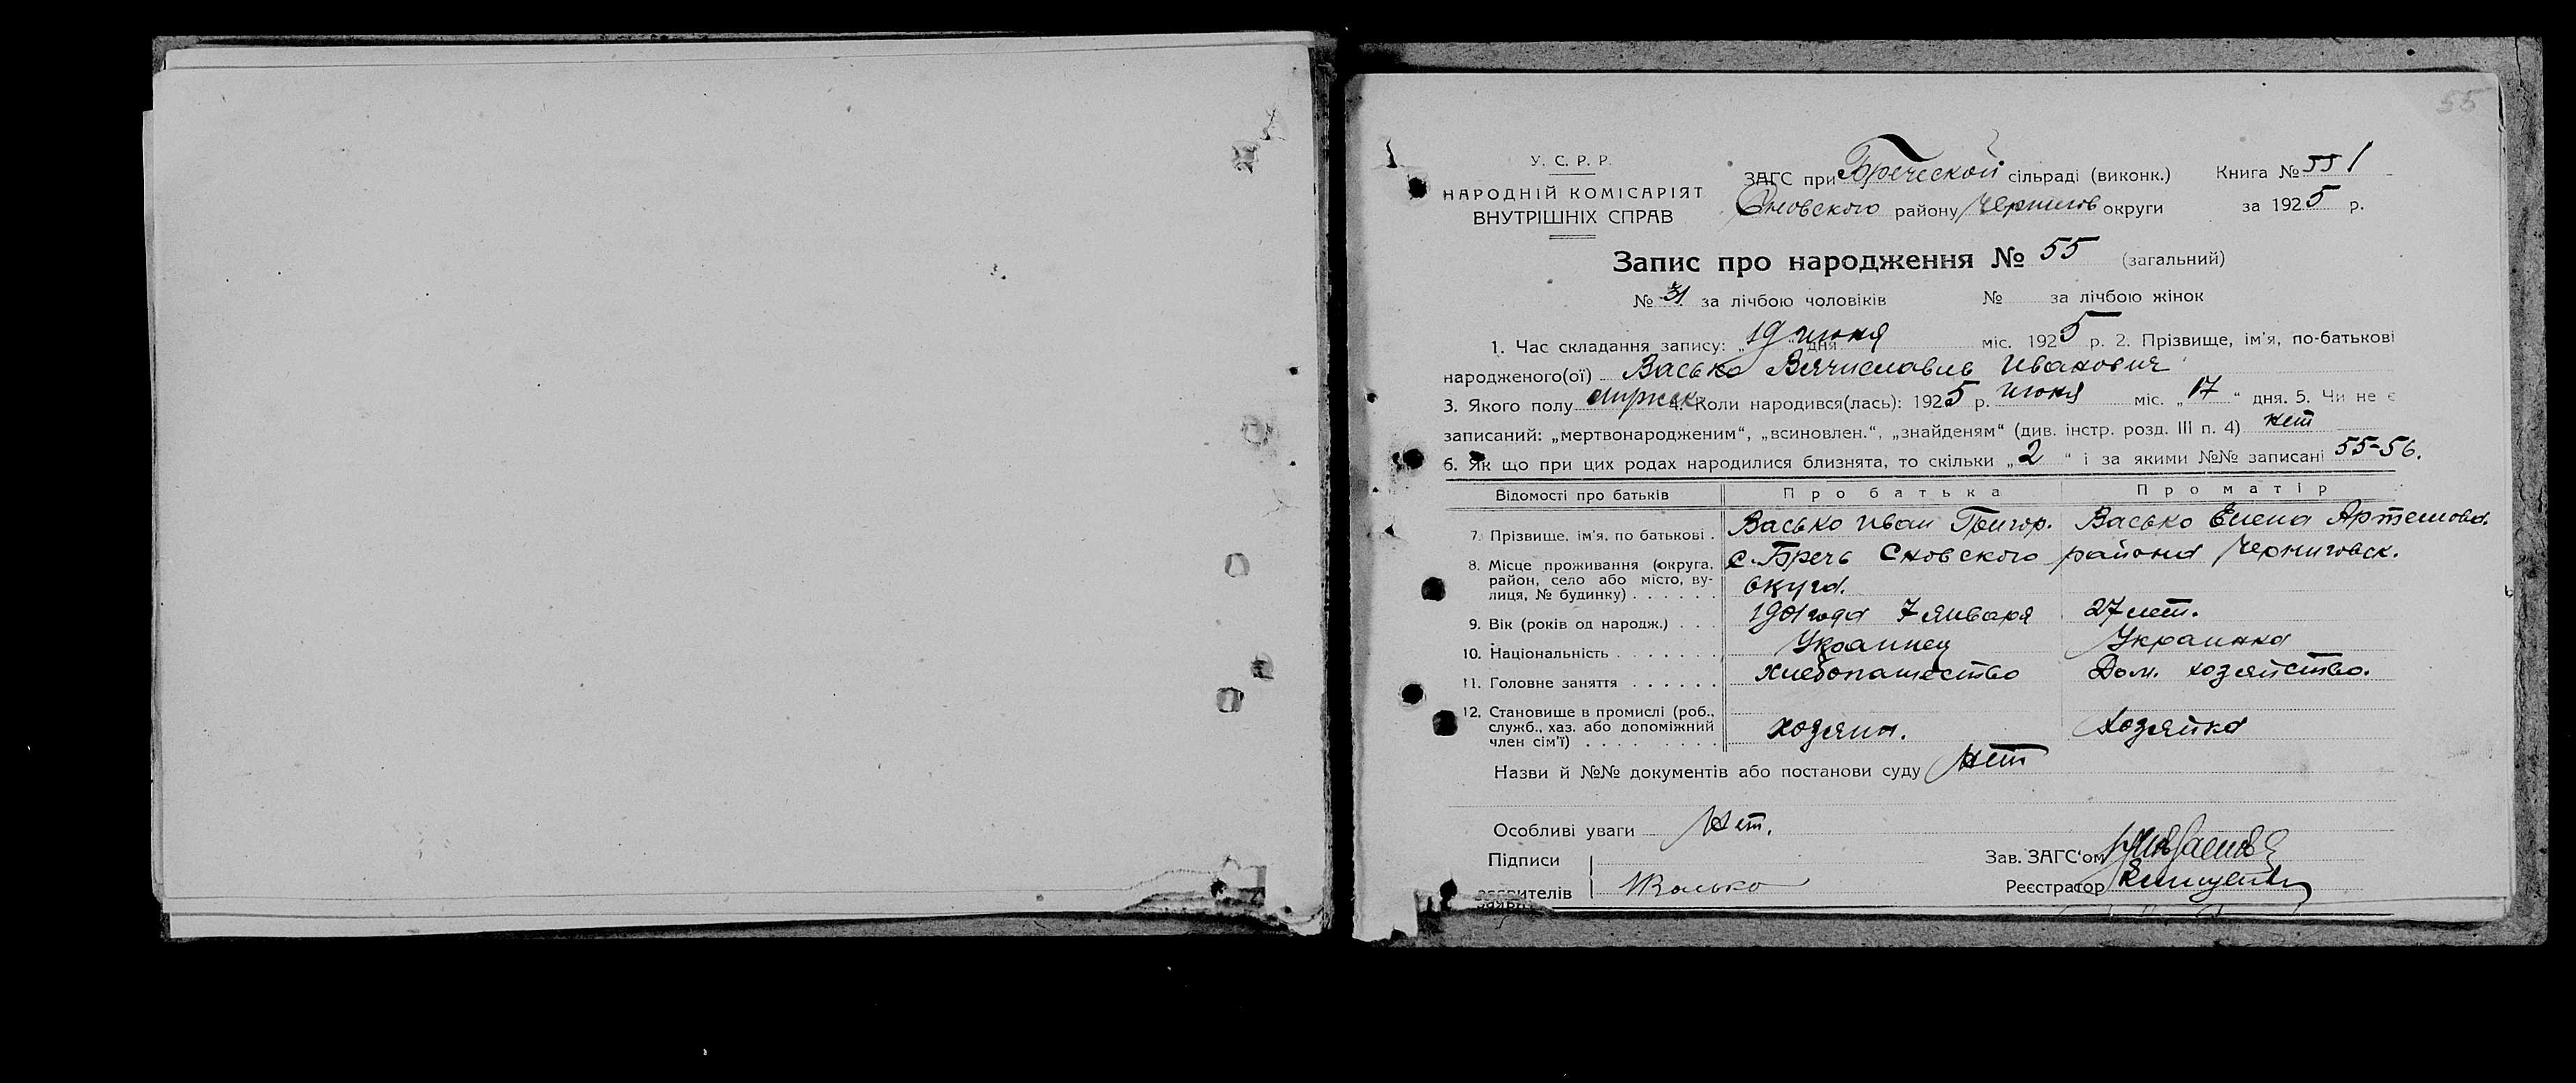 55
У. С. Р. Р.
НАРОДНІЙ КОМІСАРІЯТ
ВНУТРІШНІХ СПРАВ
ЗАГС при Бреческой сільраді (виконк.) Книга № 55 1
Сновского району Чернигов округи за 1925 р.
Запис про народження № 55 (загальний)
№ 31 за лічбою чоловіків № за лічбою жінок
1. Час складання запису: „19 июня дня міс. 1925 р. 2. Прізвище, ім'я, по-батькові
народженого(ої) Васько Вячиславль Иванович
3. Якого полу мужск 4. Коли народився(лась): 1925 р. июня міс. „17" дня. 5. Чи не є
записаний: „мертвонародженим", „всиновлен.", „знайденям" (див. інстр. розд. III п. 4) нет
6. Як що при цих родах народилися близнята, то скільки „2" і за якими №№ записані 55-56.
Відомості про батьків Про батька Про матір
7. Прізвище, ім'я, по батькові . Васько Иван Григор. Васько Елена Артемова.
8. Місце проживання (округа, район, село або місто, вулиця, № будинку) . . . . . . с. Бречь Сновского района Черниговск.
округа.
9. Вік (років од народж.) . . . 1901 года 7 января 27 лет.
10. Національність . . . . . . . Украинец Украинка
11. Головне заняття . . . . . . Хлебопашество Дом. хозяйство.
12. Становище в промислі (роб., служб., хаз. або допоміжний член сім'ї) . . . . . . . . . хозяин. Хозяйка
Назви й №№ документів або постанови суду Нет
Особливі уваги Нет.
Підписи Зав. ЗАГС'ом
Васько Реєстратор